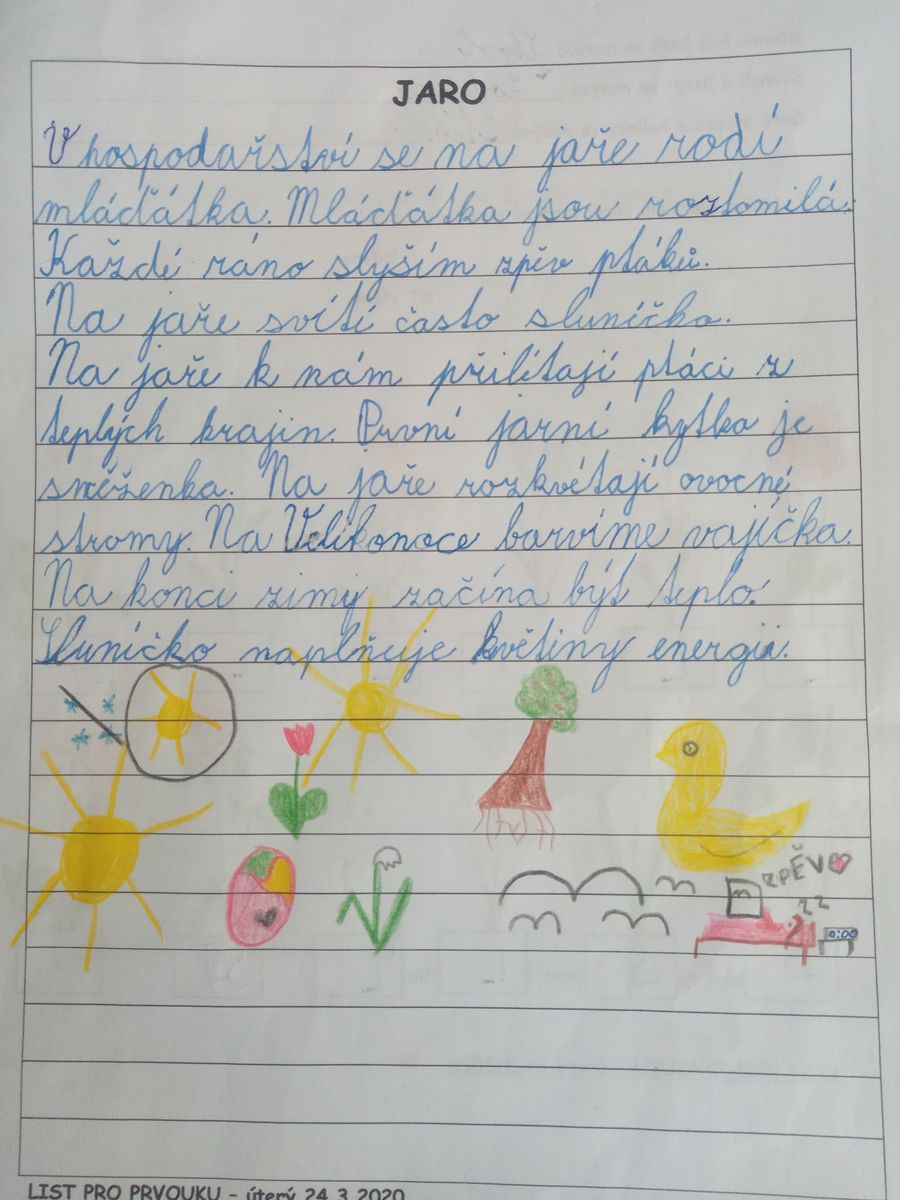 JARO
V hospodařství se na jaře rodí
mláďátka. Mláďátka jsou roztomilá.
Každé ráno slyším zpěv ptáků.
Na jaře svítí často sluníčko.
Na jaře k nám přilítají ptáci z
teplých krajin. První jarní kytka je
sněženka. Na jaře rozkvétají ovocné
stromy. Na Velikonoce barvíme vajíčka.
Na konci zimy začína být teplo.
Sluníčko naplňuje květiny energií.
ZPĚV
zz
LIST PRO PRVOUKU – úterý 24.3.2020